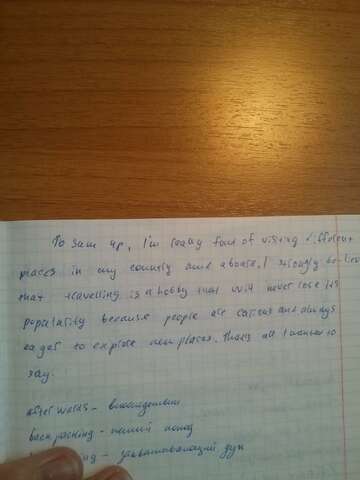 To sam up, I'm really fond of visiting different
places in my country and aboard. I strongly believe
that travelling is a hobby that will never lose its
popularity because people are curious and always
eager to explore new places. That's all I wanted to
say.
afterwards - впоследствии
backpacking - пеший поход
- захватывающий дух